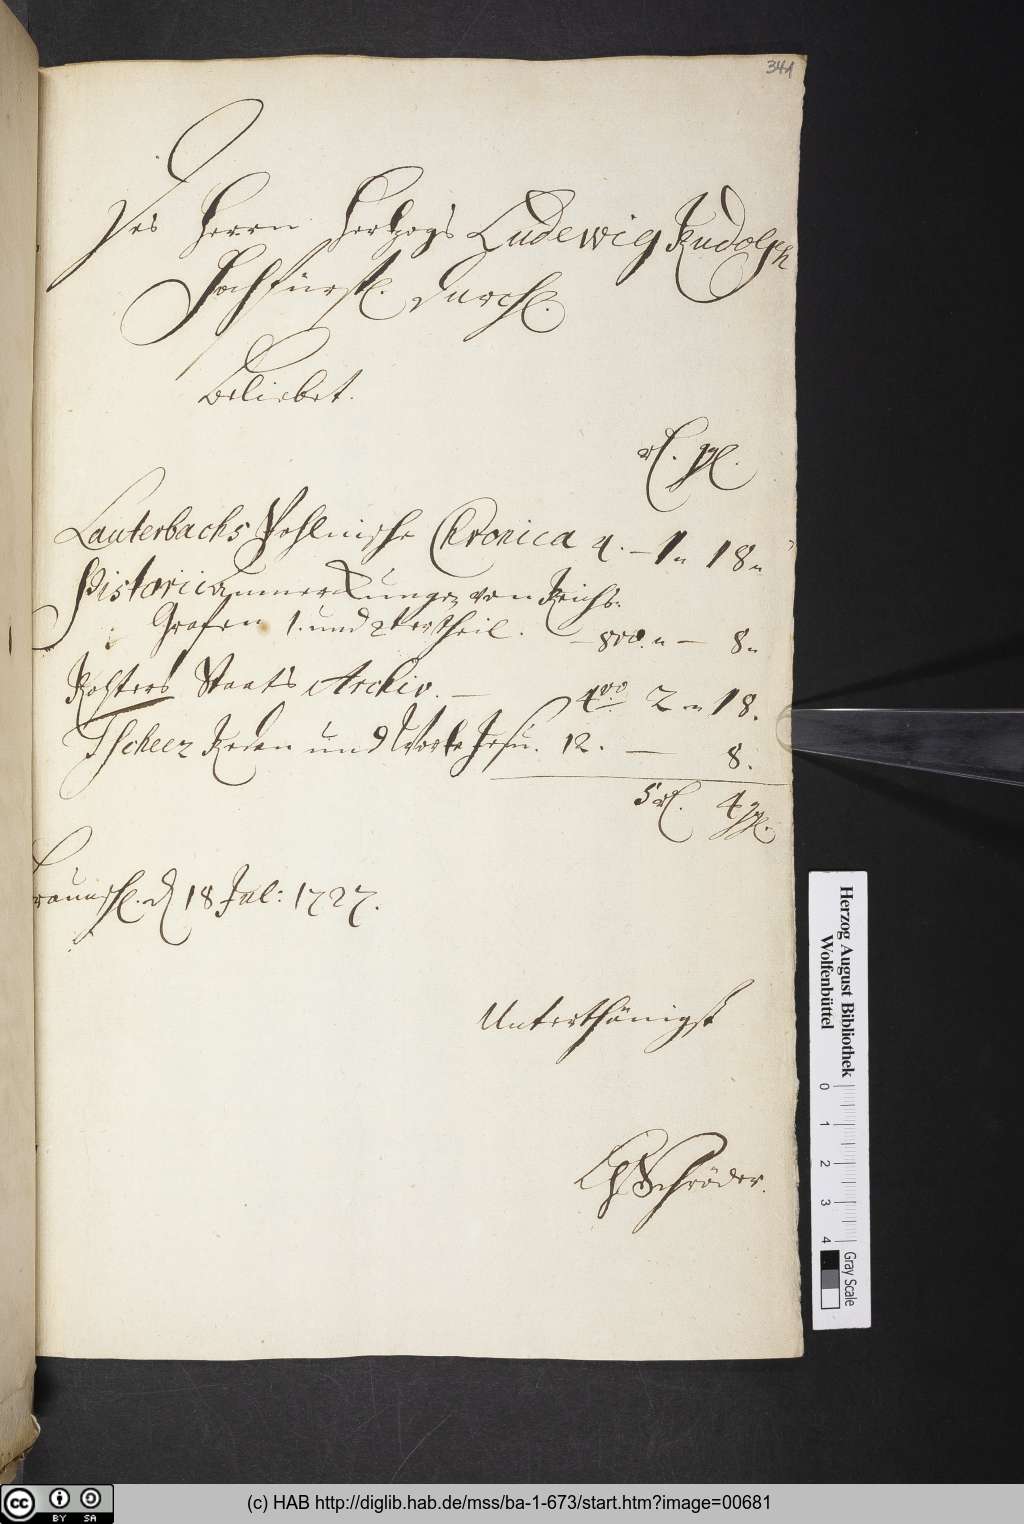 341
Des Herrn Hertzogs Ludewig Rudolph
Hochfürstl. Durchl.
Beliebet.
rl. ggl.
Lauterbachs Pohlnische Chronica 4. – 1 „ 18 „
Pistorii Anmerckungen von Reichs-
Grafen 1. und 2ter theil. – 8vo. „ – 8 „
Rohsters Staats Archiv. – 4to 2 „ 18.
Tscheer Reden und Worte Jesu. 12. – 8.
5 rl. 4 ggl.
raunschl. d 18 Jul: 1727.
Unterthänigst
Schröder.
Herzog August Bibliothek
Wolfenbüttel
0 1 2 3 4
Gray Scale
cc BY SA
(c) HAB http://diglib.hab.de/mss/ba-1-673/start.htm?image=00681